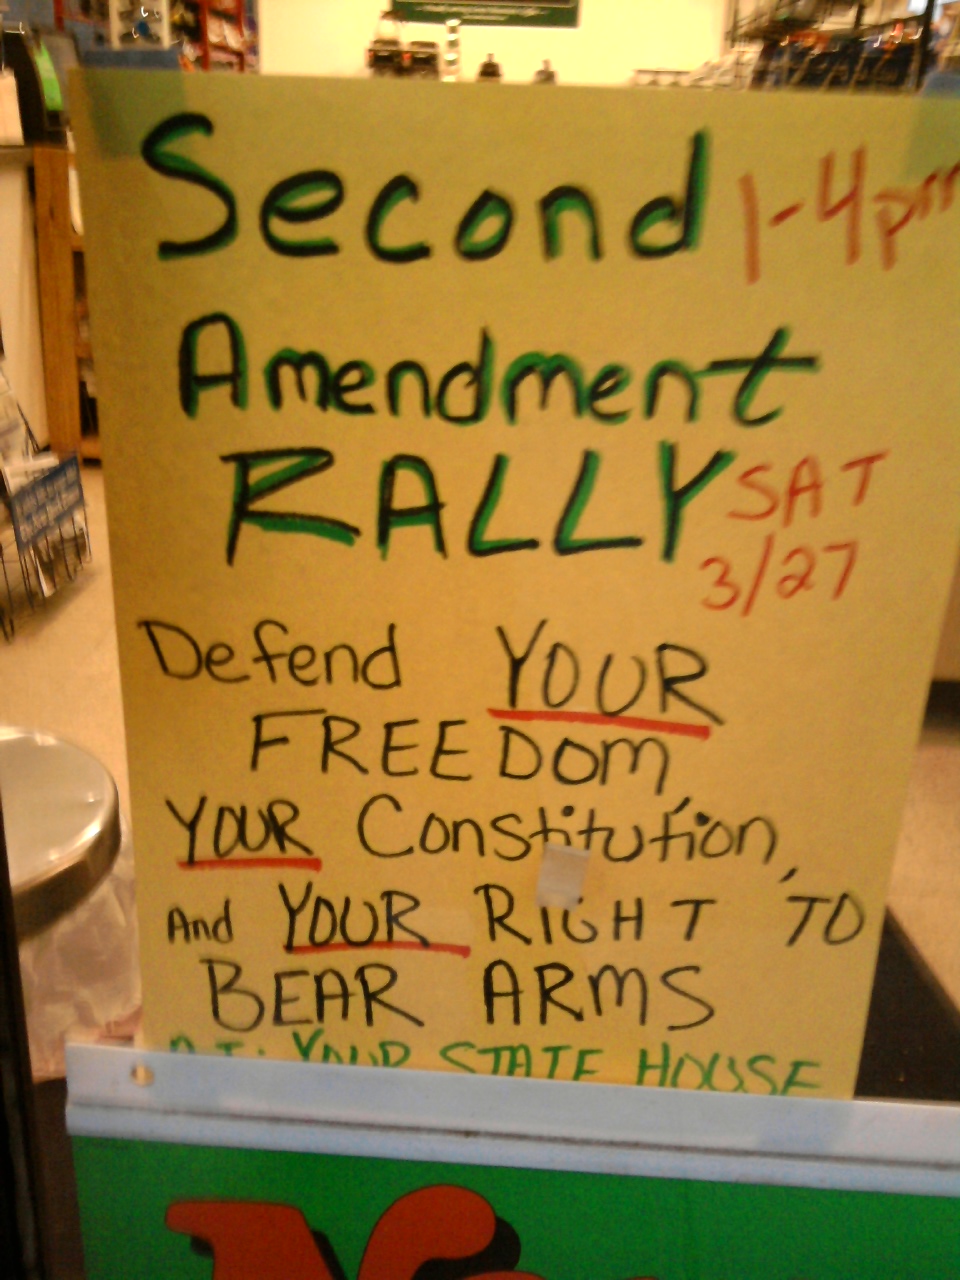 Second 1-4pm
Amendment
RALLY SAT
3/27
Defend YOUR
FREEDOM,
YOUR Constitution,
And YOUR RIGHT TO
BEAR ARMS
AT: YOUR STATE HOUSE